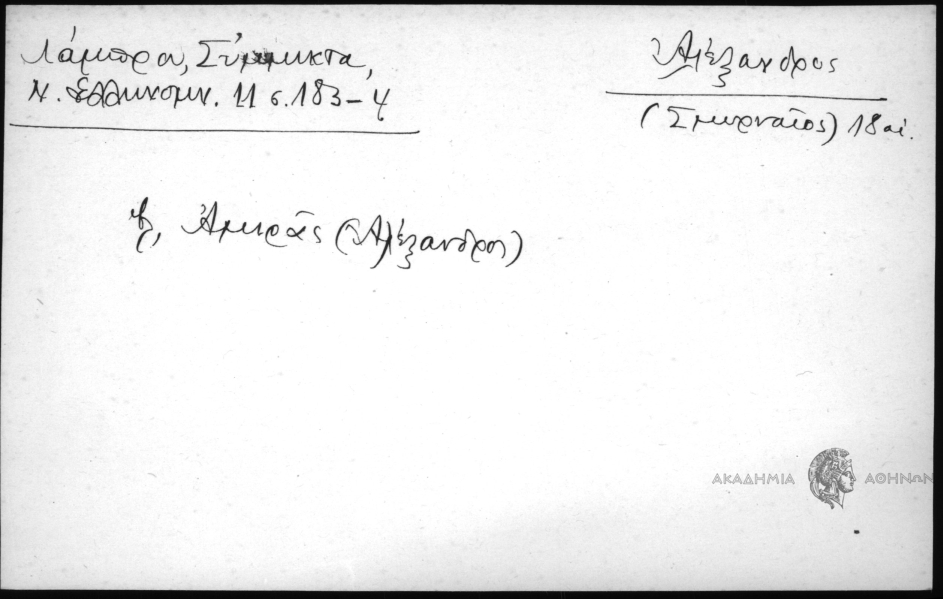 Λάμπρου, Σύμμικτα,
Ν. Ἑλληνομν. 11 σ. 183-4
Ἀλέξανδρος
(Σμυρναῖος) 18 αἰ.
Ἀμιρᾶς (Ἀλέξανδρος)
ΑΚΑΔΗΜΙΑ ΑΘΗΝΩΝ